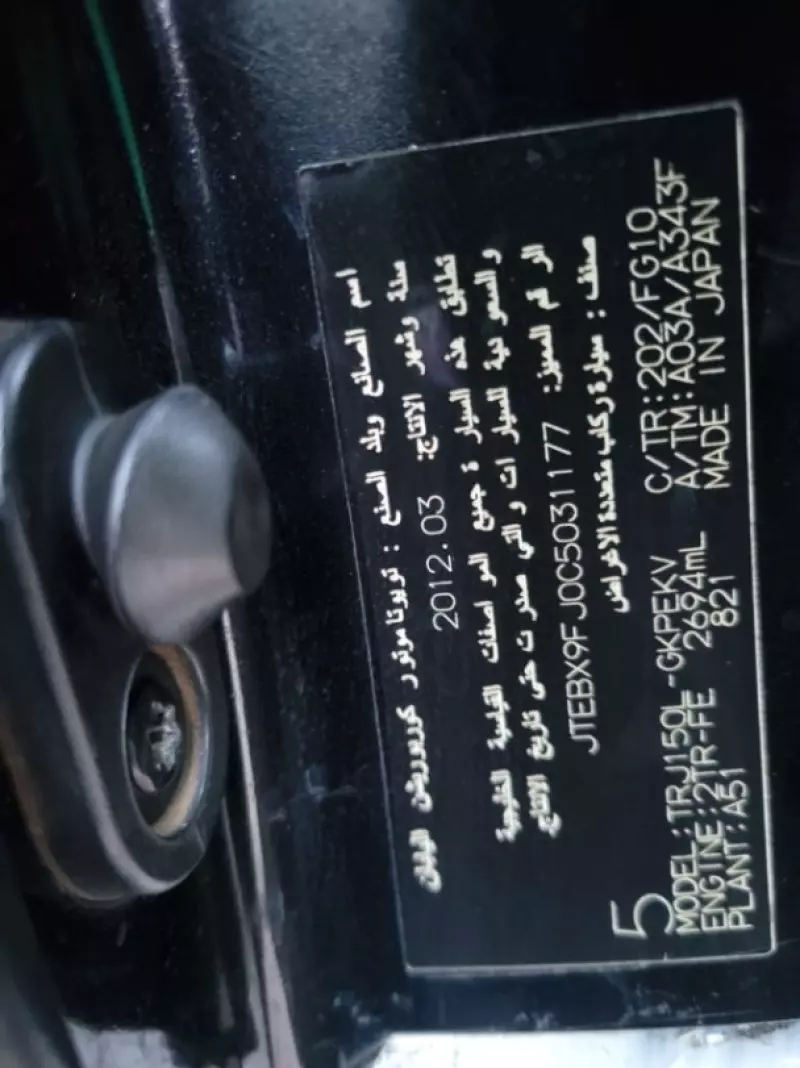 اسم الصانع وبلد الصنع : تويوتا موتور كوربوريشن اليابان
سنة وشهر الانتاج: 2012.03
تطابق هذه السيارة جميع المواصفات القياسية الخليجية
والسعودية للسيارات والتي صدرت حتى تاريخ الانتاج
الرقم المميز: JTEBX9FJ0C5031177
صنف : سيارة ركاب متعددة الاغراض
5
MODEL:TRJ150L-GKPEKV C/TR:202/FG10
ENGINE:2TR-FE 2694mL A/TM:A03A/A343F
PLANT:A51 821 MADE IN JAPAN